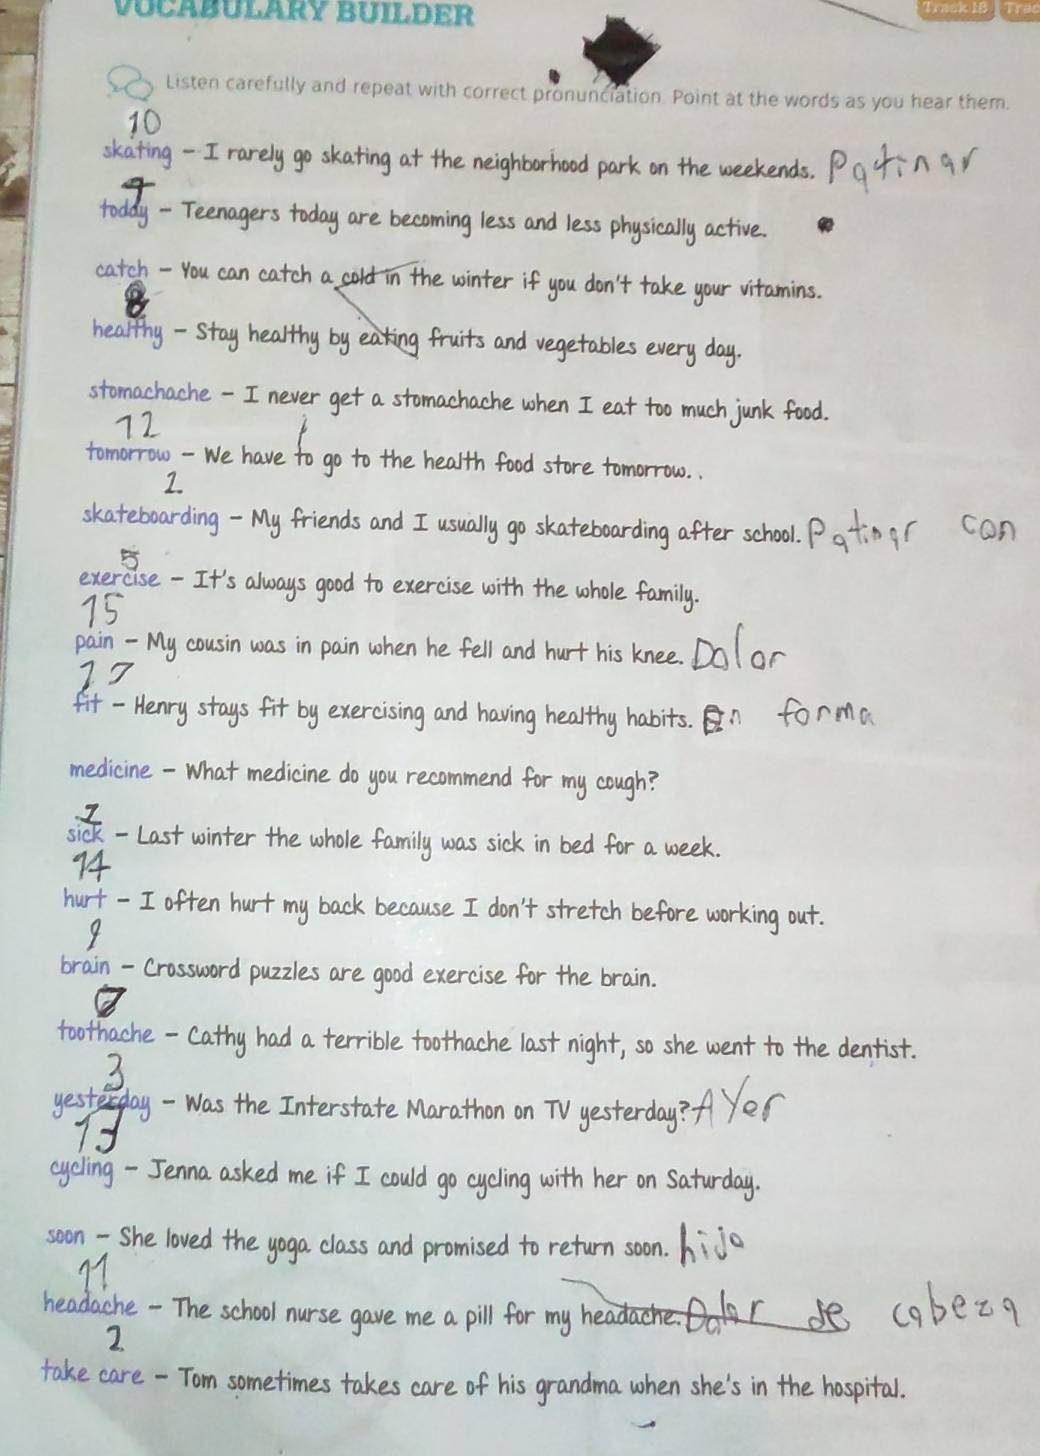 VOCABULARY BUILDER Track 18 Trac
Listen carefully and repeat with correct pronunciation. Point at the words as you hear them.
10
skating – I rarely go skating at the neighborhood park on the weekends. Patinar
today – Teenagers today are becoming less and less physically active.
catch – You can catch a cold in the winter if you don't take your vitamins.
8
healthy – Stay healthy by eating fruits and vegetables every day.
stomachache – I never get a stomachache when I eat too much junk food.
12
tomorrow – We have to go to the health food store tomorrow..
skateboarding – My friends and I usually go skateboarding after school. Patinar con
5
exercise – It's always good to exercise with the whole family.
15
pain – My cousin was in pain when he fell and hurt his knee. Dolor
fit – Henry stays fit by exercising and having healthy habits. En forma
medicine – What medicine do you recommend for my cough?
sick – Last winter the whole family was sick in bed for a week.
14
hurt – I often hurt my back because I don't stretch before working out.
9
brain – Crossword puzzles are good exercise for the brain.
toothache – Cathy had a terrible toothache last night, so she went to the dentist.
3
yesterday – Was the Interstate Marathon on TV yesterday? AYer
13
cycling – Jenna asked me if I could go cycling with her on Saturday.
soon – She loved the yoga class and promised to return soon. hijo
11
headache – The school nurse gave me a pill for my headache. Dolor de cabeza
2
take care – Tom sometimes takes care of his grandma when she's in the hospital.